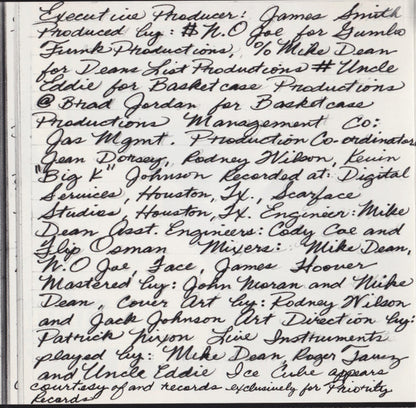 Executive Producer: James Smith
Produced by: # N.O Joe for Gumbo
Funk Productions, % Mike Dean
for Deans List Productions # Uncle
Eddie for Basketcase Productions
@ Brad Jordan for Basketcase
Productions Management Co:
Jas Mgmt. Production Co-ordinators
Jean Dorsey, Rodney Wilson, Kevin
"Big K" Johnson Recorded at: Digital
Services, Houston, Tx., Scarface
Studios, Houston, Tx. Engineer: Mike
Dean Asst. Engineers: Cody Coe and
Flip Osman Mixers: Mike Dean,
N.O Joe, Face, James Hoover
Mastered by: John Moran and Mike
Dean, Cover Art by: Rodney Wilson
and Jack Johnson Art Direction by:
Patrick Live Instruments
played by: Mike Dean, Roger
and Uncle Eddie Ice Cube appears
courtesy of and records exclusively for Priority
Records